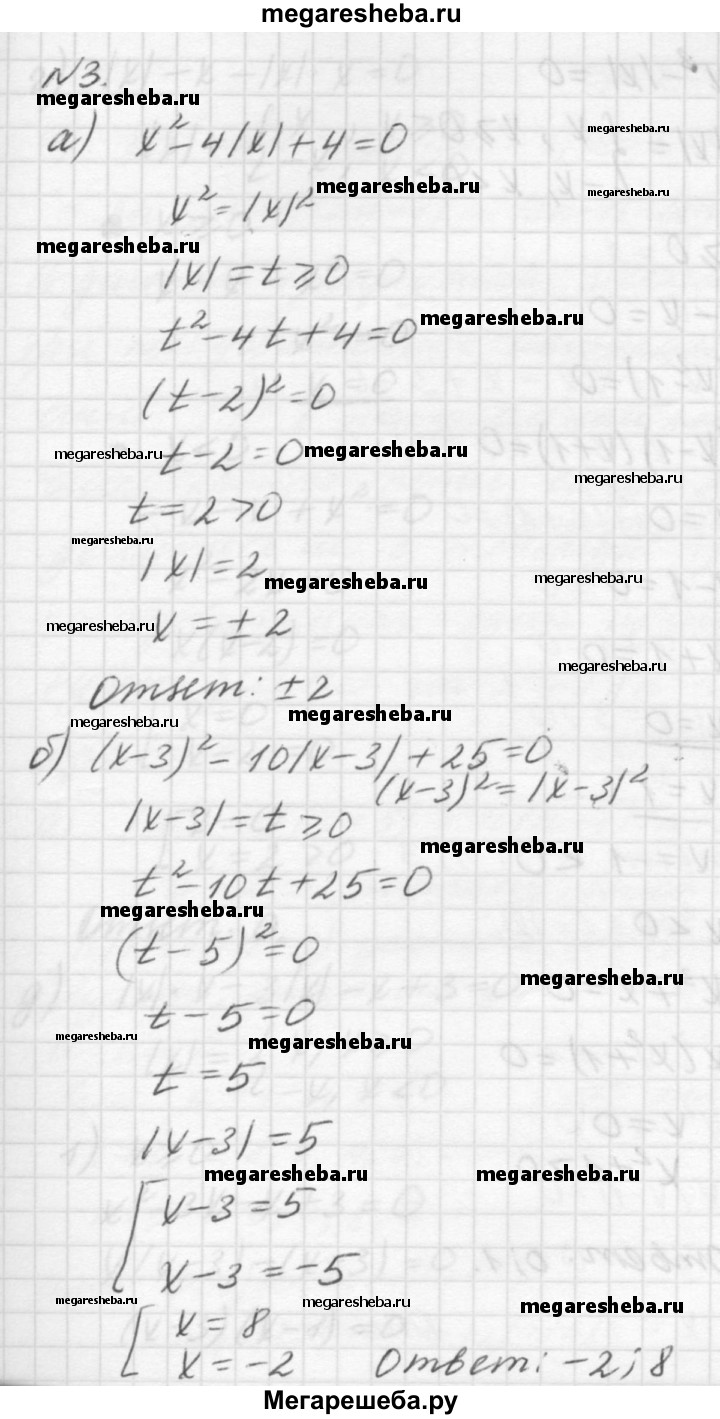 megaresheba.ru
№3.
megaresheba.ru
а) x²-4|x|+4=0
megaresheba.ru
x²=|x|²
megaresheba.ru
megaresheba.ru
megaresheba.ru
|x|=t⩾0
t²-4t+4=0
megaresheba.ru
(t-2)²=0
megaresheba.ru
t-2=0
megaresheba.ru
megaresheba.ru
t=2>0
megaresheba.ru
|x|=2
megaresheba.ru
megaresheba.ru
megaresheba.ru
x=±2
megaresheba.ru
Ответ: ±2
megaresheba.ru
megaresheba.ru
б) (x-3)²-10|x-3|+25=0
(x-3)²=|x-3|²
|x-3|=t⩾0
megaresheba.ru
t²-10t+25=0
megaresheba.ru
(t-5)²=0
megaresheba.ru
t-5=0
megaresheba.ru
megaresheba.ru
t=5
|x-3|=5
megaresheba.ru
megaresheba.ru
x-3=5
x-3=-5
megaresheba.ru
megaresheba.ru
megaresheba.ru
x=8
x=-2 Ответ: -2; 8
Мегарешеба.ру